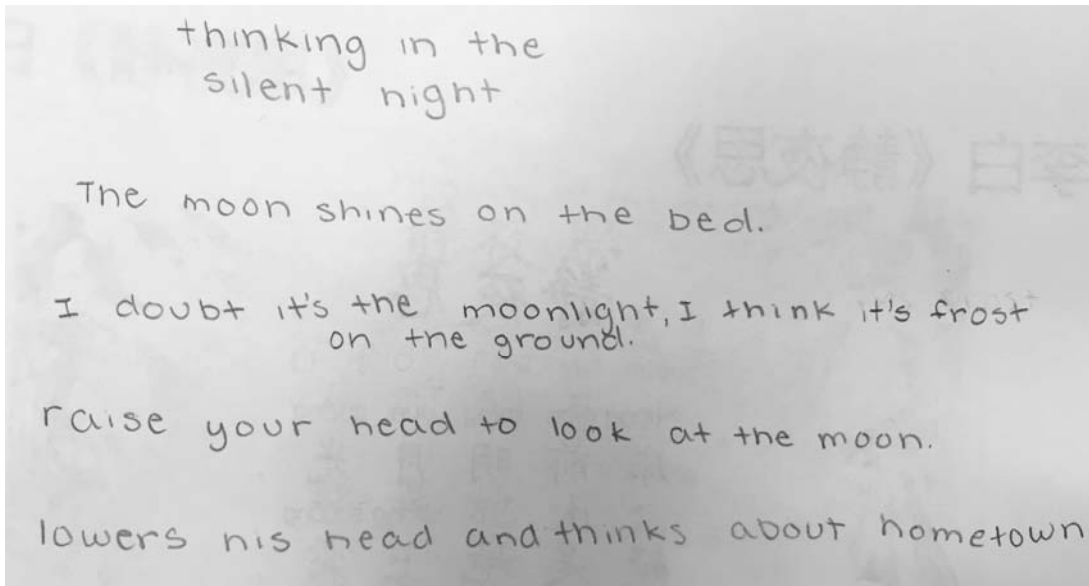 thinking in the
silent night
The moon shines on the bed.
I doubt it's the moonlight, I think it's frost
on the ground.
raise your head to look at the moon.
lowers his head and thinks about hometown